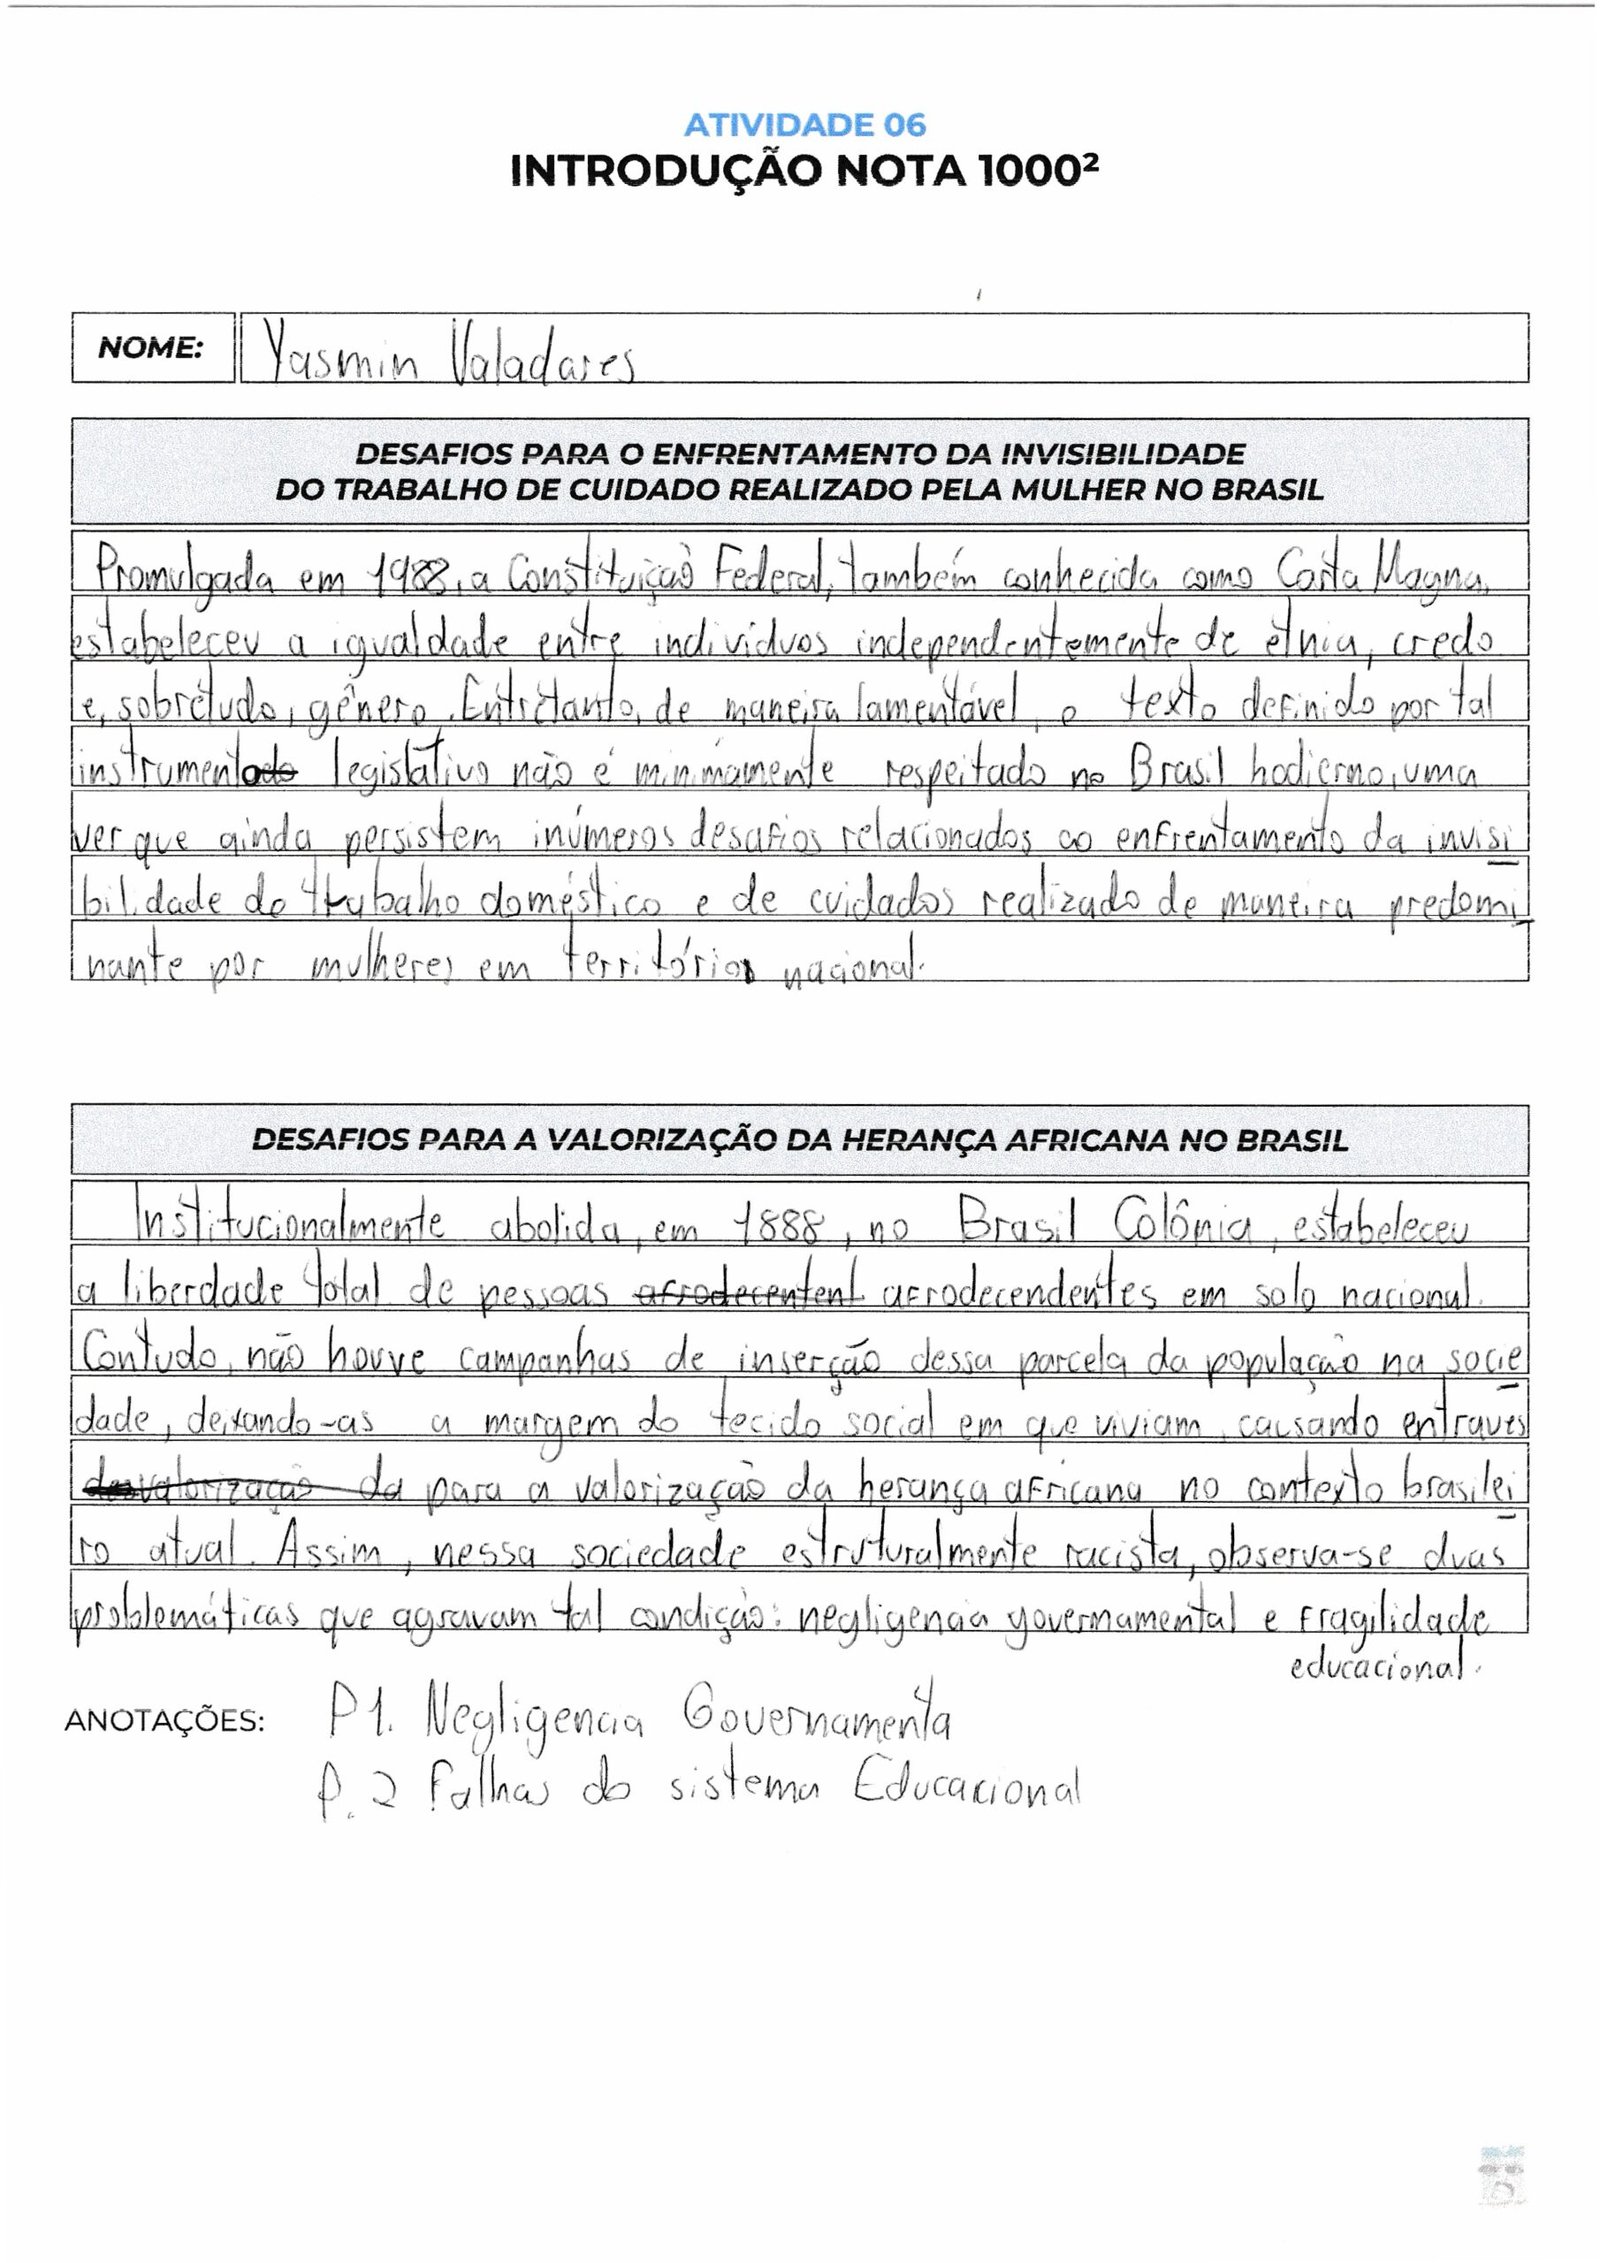 ATIVIDADE 06
INTRODUÇÃO NOTA 1000²
NOME: Yasmin Valadares
DESAFIOS PARA O ENFRENTAMENTO DA INVISIBILIDADE
DO TRABALHO DE CUIDADO REALIZADO PELA MULHER NO BRASIL
Promulgada em 1988, a Constituição Federal, também conhecida como Carta Magna,
estabeleceu a igualdade entre indivíduos independentemente de etnia, credo
e, sobretudo, gênero. Entretanto, de maneira lamentável, o texto definido por tal
instrumento legislativo não é minimamente respeitado no Brasil hodierno, uma
vez que ainda persistem inúmeros desafios relacionados ao enfrentamento da invisi
bilidade do trabalho doméstico e de cuidados realizado de maneira predomi
nante por mulheres em território nacional.
DESAFIOS PARA A VALORIZAÇÃO DA HERANÇA AFRICANA NO BRASIL
Institucionalmente abolida, em 1888, no Brasil Colônia, estabeleceu
a liberdade total de pessoas afrodecentent afrodecendentes em solo nacional.
Contudo, não houve campanhas de inserção dessa parcela da população na socie
dade, deixando-as a margem do tecido social em que viviam, causando entraves
desvalorização da para a valorização da herança africana no contexto brasilei
ro atual. Assim, nessa sociedade estruturalmente racista, observa-se duas
problemáticas que agravam tal condição: negligencia governamental e fragilidade
educacional.
ANOTAÇÕES: P1. Negligencia Governamenta
P.2 Falhas do sistema Educacional